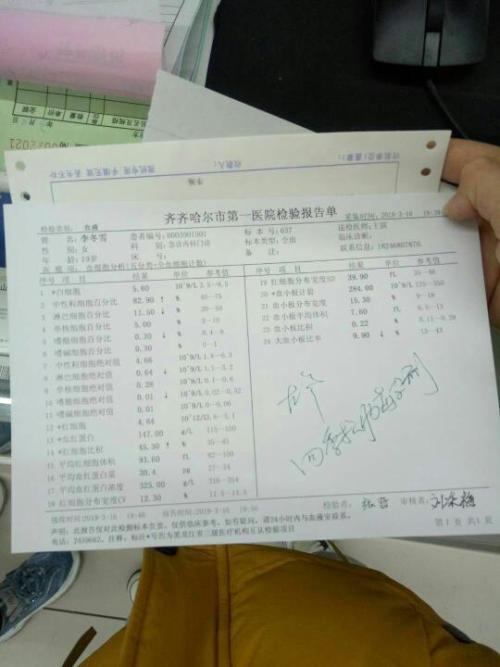 齐齐哈尔市第一医院检验报告单
检验标志: 血液
采集时间:2019-3-16
姓 名:李冬雪 患者编号:0003901901 标 本 号:637 送检医师:王滨
性 别:女 科 别:急诊内科门诊 标本类型:全血 临床诊断:
年 龄:19岁 备 注: 联系信息:18246807875
医嘱项: 血细胞分析(五分类-全血细胞计数)
序号 项 目 结果 单位 参考值
1 *白细胞 5.60 10^9/L 3.5--9.5
2 中性粒细胞百分比 82.90 ↑ % 40--75
3 淋巴细胞百分比 11.50 ↓ % 20--50
4 单核细胞百分比 5.00 % 3--10
5 嗜酸细胞百分比 0.30 ↓ % 0.4--8
6 嗜碱细胞百分比 0.30 % 0--1
7 中性粒细胞绝对值 4.66 10^9/L 1.8--6.3
8 淋巴细胞绝对值 0.64 ↓ 10^9/L 1.1--3.2
9 单核细胞绝对值 0.28 10^9/L 0.1--0.6
10 嗜酸细胞绝对值 0.01 ↓ 10^9/L 0.02--0.52
11 嗜碱细胞绝对值 0.01 10^9/L 0--0.06
12 *红细胞 4.84 10^12/L 3.8--5.1
13 *血红蛋白 147.00 g/L 115--150
14 *红细胞比积 45.30 ↑ % 35--45
15 平均红细胞体积 93.60 fL 82--100
16 平均红细胞血红蛋白量 30.4 pg 27--34
17 平均红细胞血红蛋白浓度 325.00 g/L 316--354
18 红细胞分布宽度CV 12.30 % 11.5--14.5
序号 项 目 结果 单位 参考值
19 红细胞分布宽度SD 39.90 fL
20 *血小板计数 284.00 10^9/L 125--350
21 血小板分布宽度 15.30 % 9--18
22 血小板平均体积 7.60 fL 6.5--13
23 血小板比积 0.22 % 0.11--0.28
24 大血小板比率 9.90 ↓ % 13--43
接收时间:2019-3-16 19:46 报告时间:2019-3-16 19:50 检验者: 审核者:
声明:此报告仅对此检测标本负责,仅供临床参考。如有疑问,请24小时内与血液室联系。
注释:标注*号的为黑龙江省三级医疗机构互认检验项目
第 1 页 共1 页